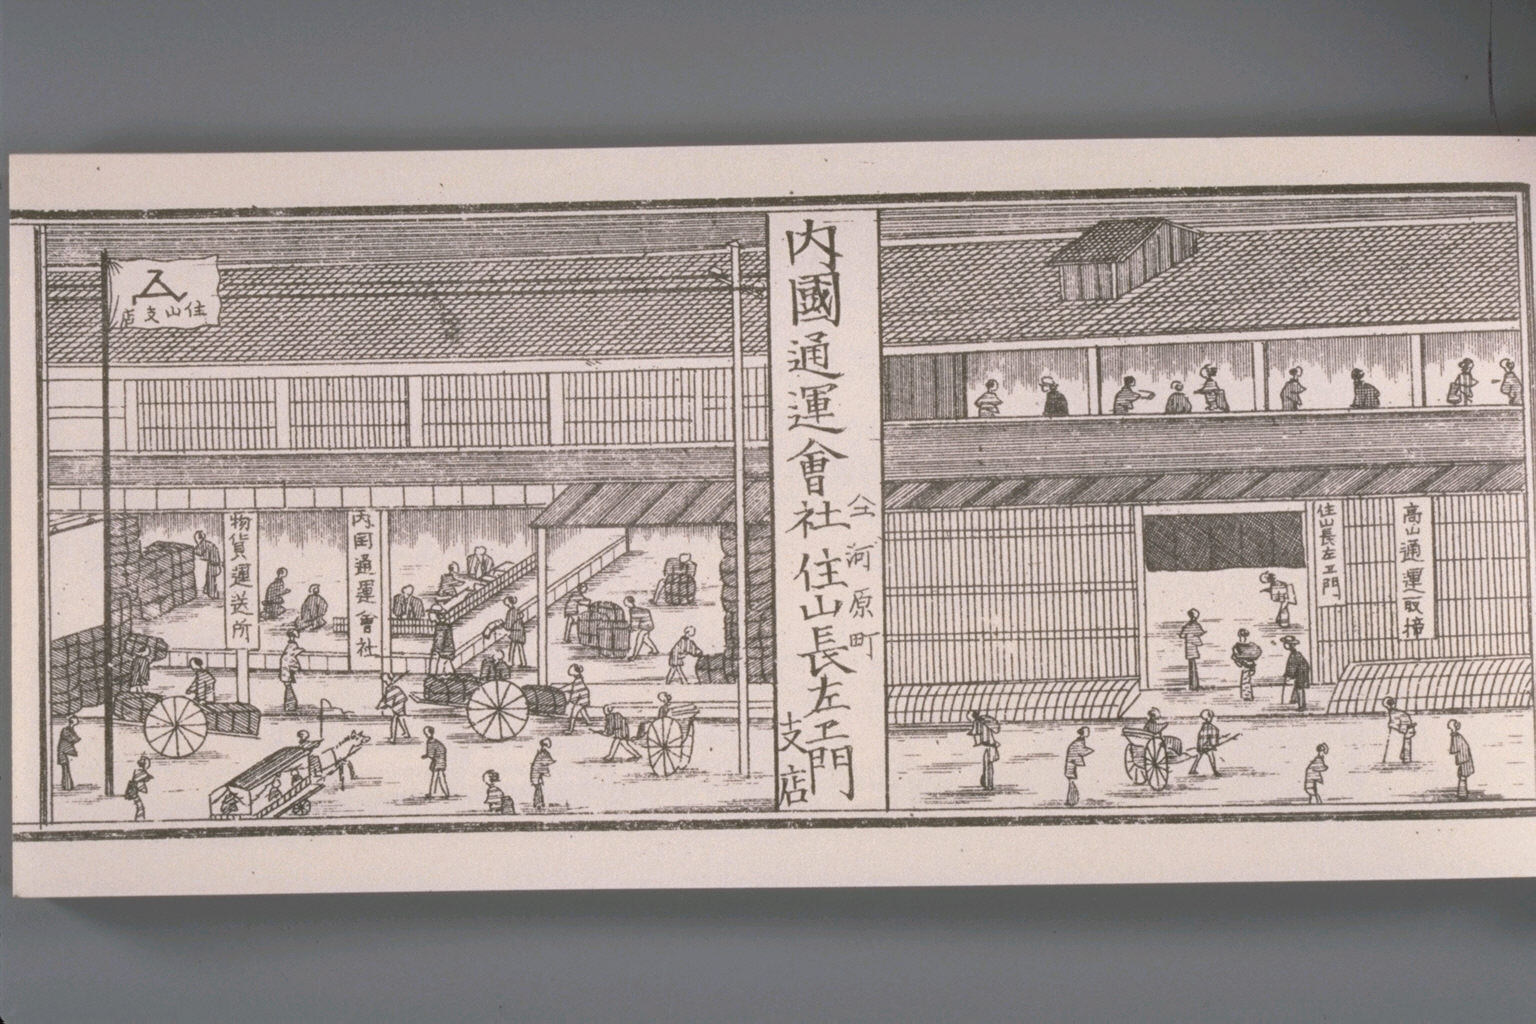 高山通運取締
住山長左エ門
仝河原町
内國通運會社住山長左エ門
支店
内国通運會社
物貨運送所
住山支店